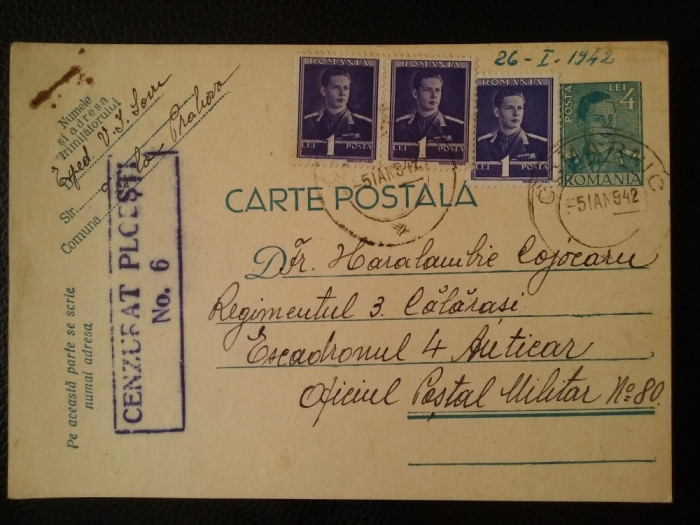 26-I.1942
ROMANIA
LEI 1 POSTA
ROMANIA
LEI 1 POSTA
ROMANIA
LEI 1 POSTA
POSTA LEI 4
ROMANIA
-5IAN942
-5IAN942
COMARNIC
CARTE POSTALA
Fr. Haralambie Cojocaru
Regimentul 3. Călărași
Escadronul 4 Anticar
Oficiul Poștal Militar No 80.
Numele
și adresa
trimițătorului
Exped V. I.
Str.
Comuna Prahova
Pe această parte se scrie
numai adresa
CENZURAT PLOEȘTI
No. 6